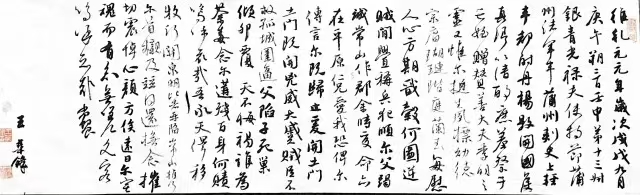 維乾元元年歲次戊戌九月
庚午朔三日壬申第十三叔
銀青光祿夫使持節蒲
州諸軍事蒲州刺史上輕
車都尉丹楊縣開國侯
真卿以清酌庶羞祭于
亡姪贈贊善大夫季明之
靈惟尔挺生夙標幼德
宗廟瑚璉階庭蘭玉每慰
人心方期戩穀何圖逆
賊間釁稱兵犯順尔父竭
誠常山作郡余時受命亦
在平原仁兄愛我俾尔
傳言尔既歸止爰開土門
土門既開凶威大蹙賊臣不
救孤城圍逼父陷子死巢
傾卵覆天不悔禍誰為
荼毒念尔遘殘百身何贖
嗚呼哀哉吾承天澤移
牧河關泉明比者再陷常山攜
尔首櫬及茲同還撫念摧
切震悼心顏方俟遠日
魂而有知無嗟久客
嗚呼哀哉尚饗